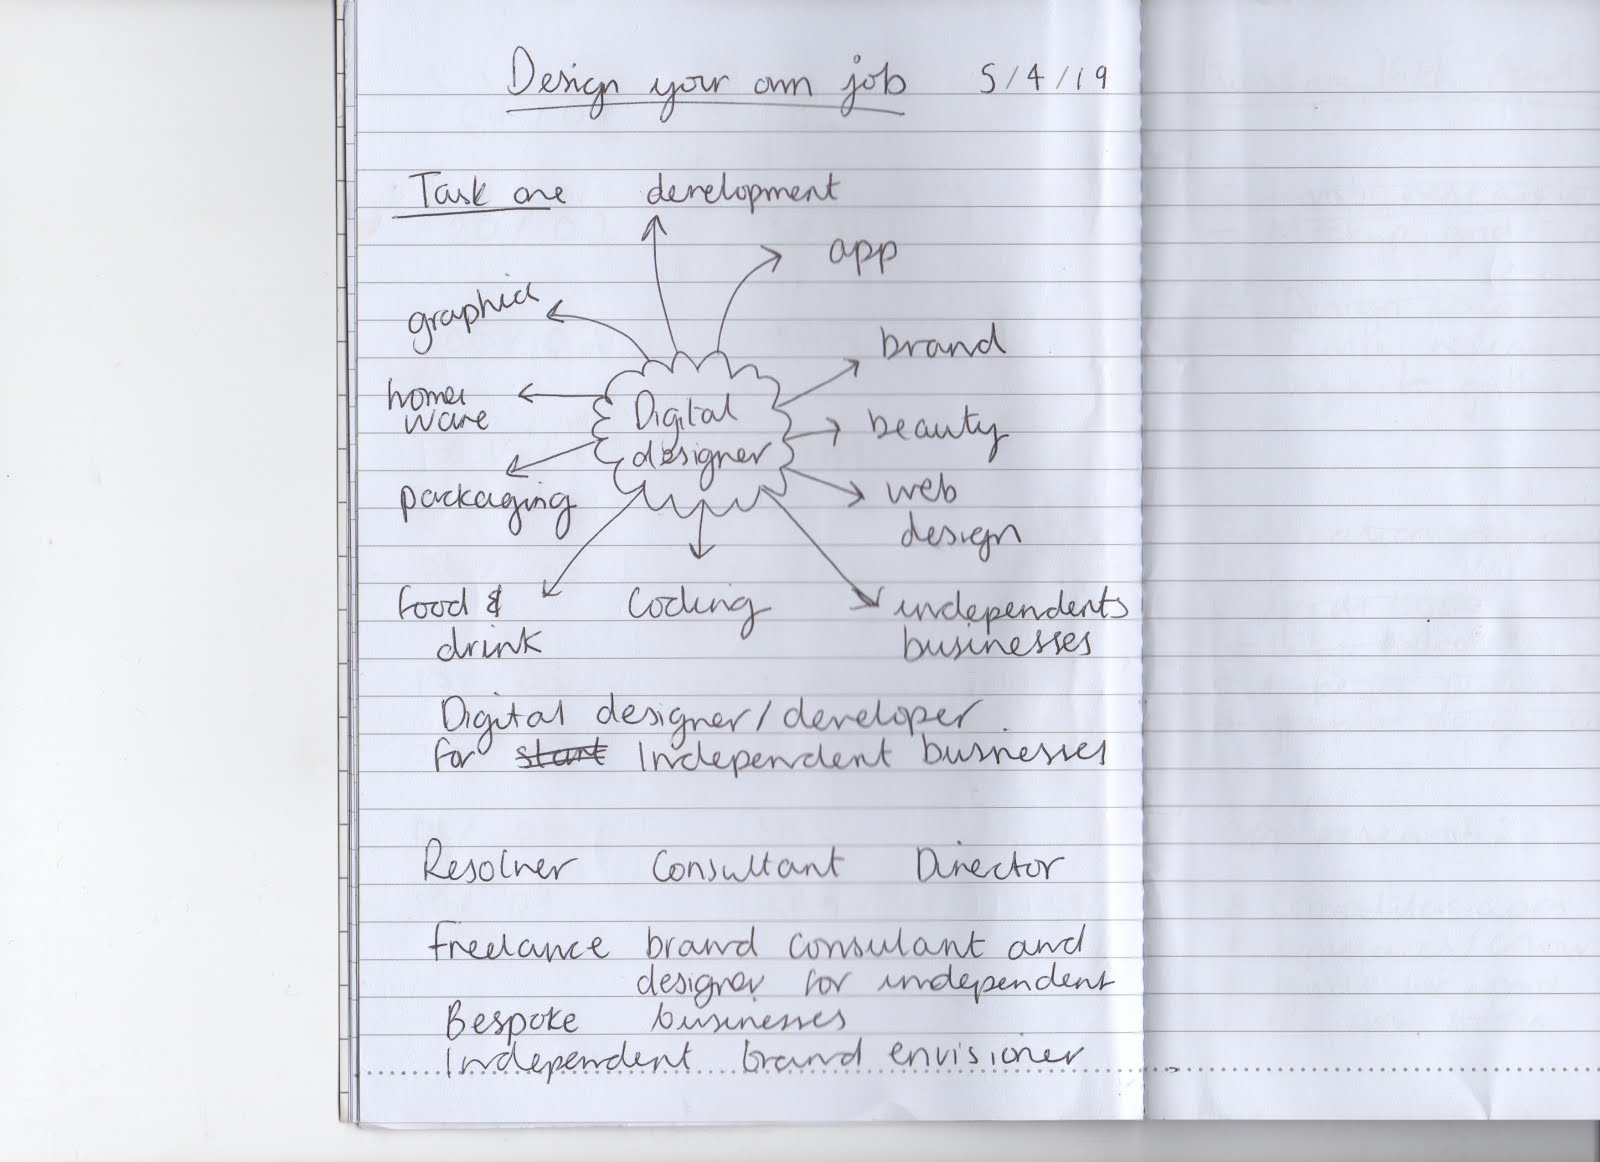 Design your own job 5/4/19
Task one development
app
graphics
brand
home
ware
Digital
designer
beauty
packaging
web
design
food & coding independents
drink businesses
Digital designer/developer
for start Independent businesses
Resolver Consultant Director
freelance brand consulant and
designer for independent
Bespoke businesses
Independent brand envisioner